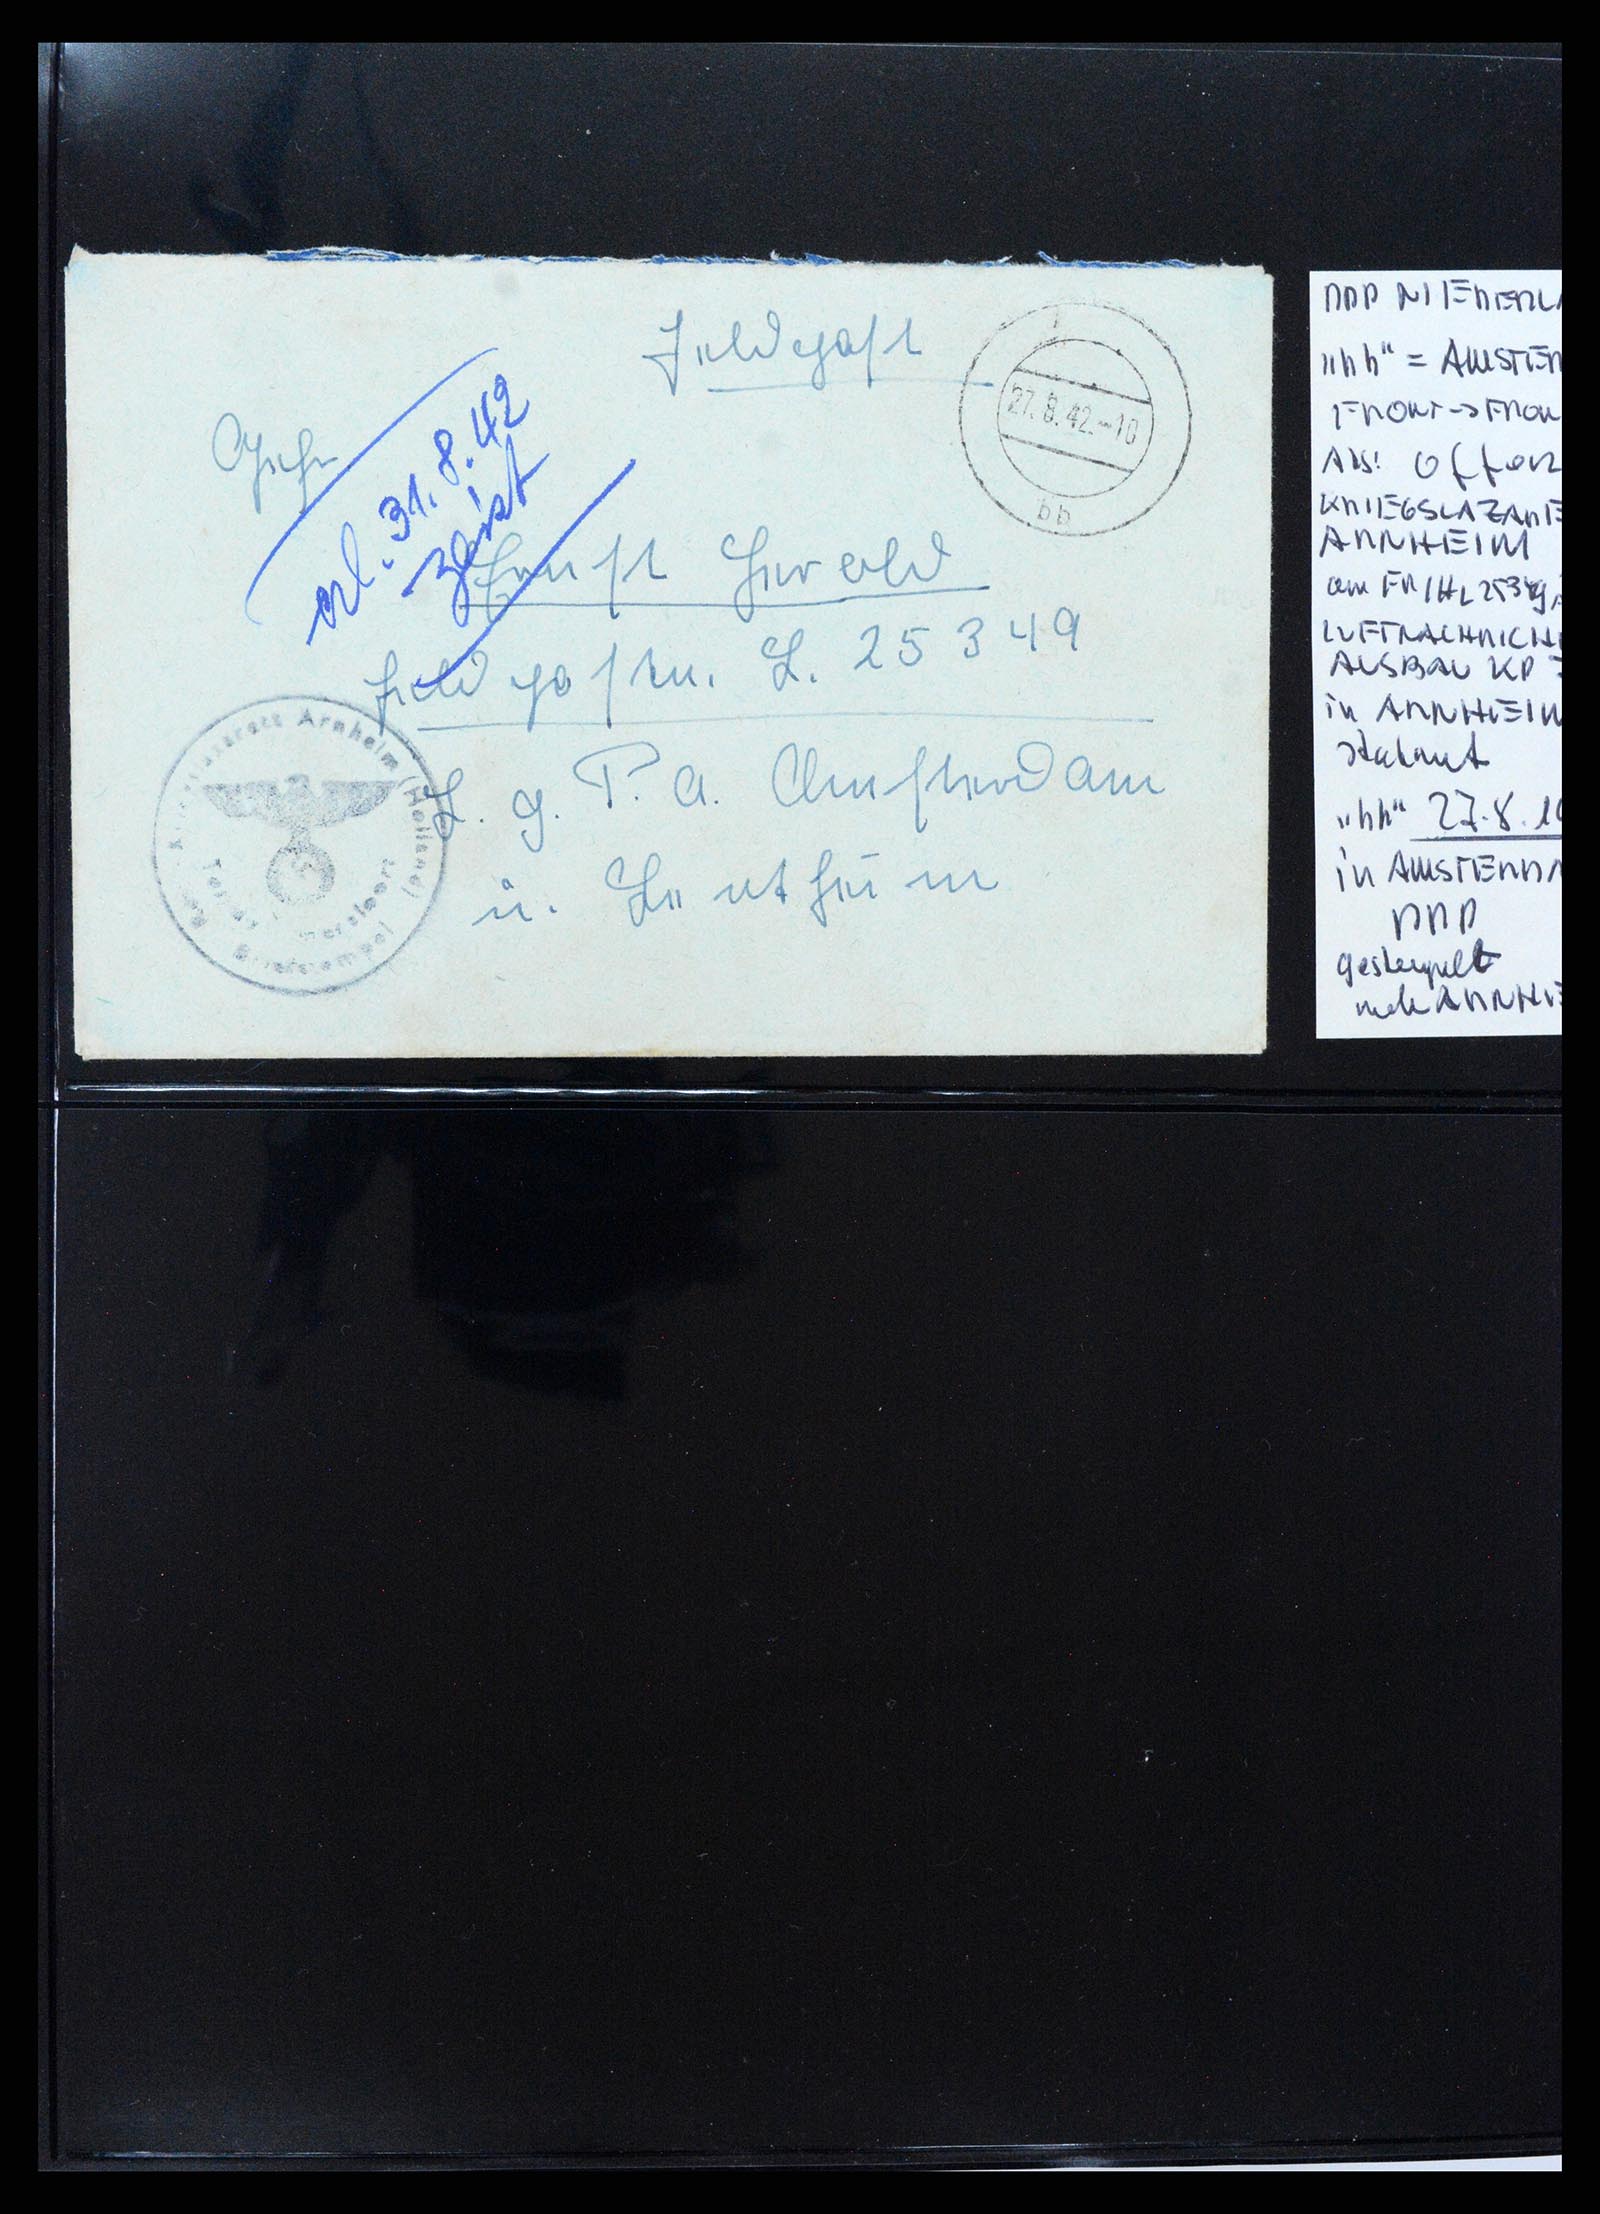 Feldpost
27.8.42.-10
bb
Gefr.
erl. 31.8.42
Zeist
Ernst Herold
Feldpostnr. L. 25349
L. g. P. a. Amsterdam
ü. Bentheim
Arnheim (Holland)
Briefstempel
DDP NIEDERLA
"bb" = AMSTER
FRONT -> FRON
Abs: Offenz
KRIEGSLAZARE
ARNHEIM
an FP/HL 25349
LUFTNACHRICH
AUSBAU KP
in ARNHEIM
"bb" 27.8.19
in AMSTERDA
DDP
gestempelt
nach ARNHE